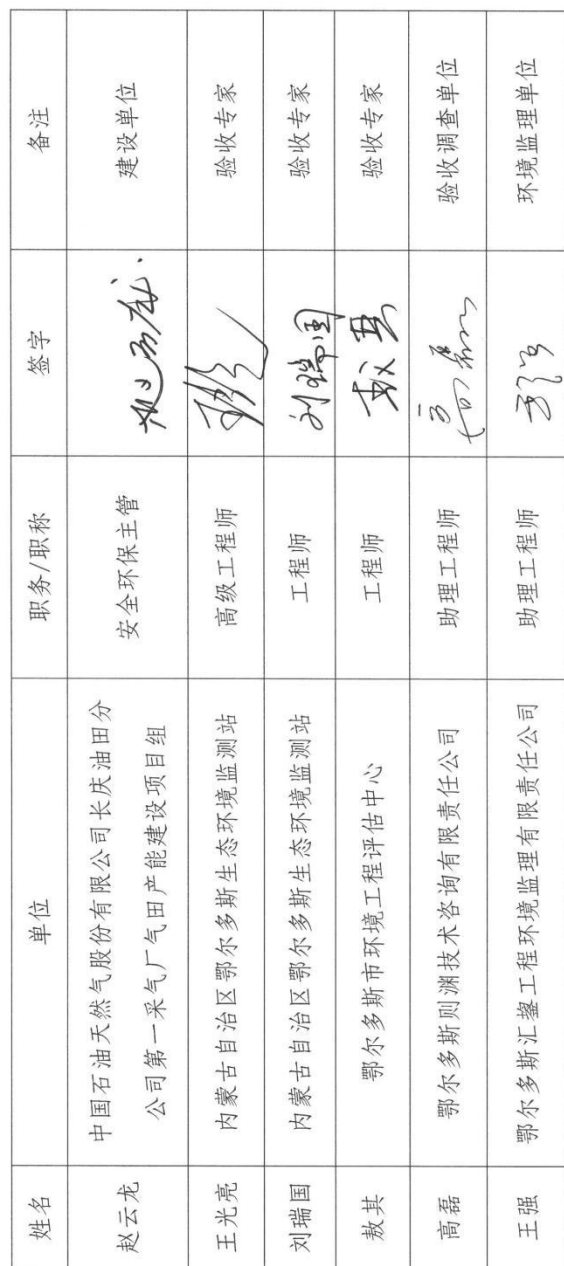 姓名 单位 职务/职称 签字 备注
赵云龙 中国石油天然气股份有限公司长庆油田分
公司第一采气厂气田产能建设项目组 安全环保主管 赵云龙 建设单位
王光亮 内蒙古自治区鄂尔多斯生态环境监测站 高级工程师 验收专家
刘瑞国 内蒙古自治区鄂尔多斯生态环境监测站 工程师 刘瑞国 验收专家
敖其 鄂尔多斯市环境工程评估中心 工程师 敖其 验收专家
高磊 鄂尔多斯则渊技术咨询有限责任公司 助理工程师 高磊 验收调查单位
王强 鄂尔多斯汇鋆工程环境监理有限责任公司 助理工程师 环境监理单位